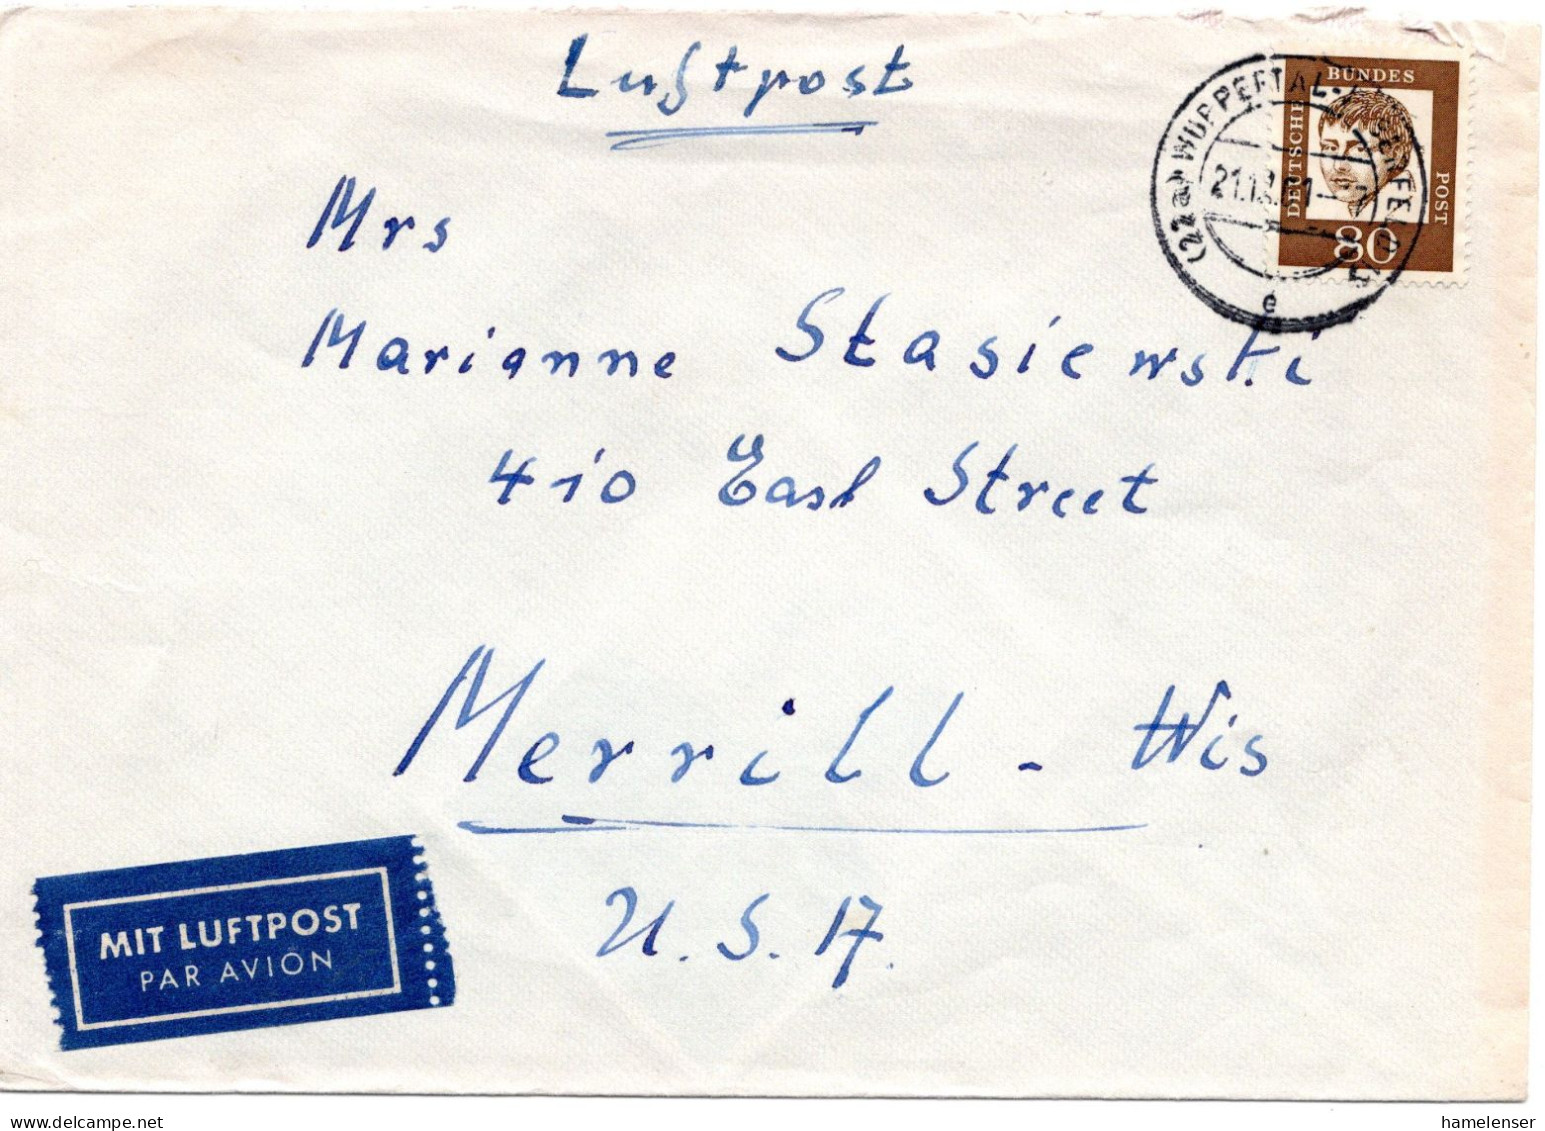 Luftpost
BUNDES
DEUTSCHE
POST
80
(22a) WUPPERTAL-
e
Mrs
Marianne Stasiewski
410 East Street
Merrill - Wis
U.S.A.
MIT LUFTPOST
PAR AVION
www.delcampe.net
hamelenser